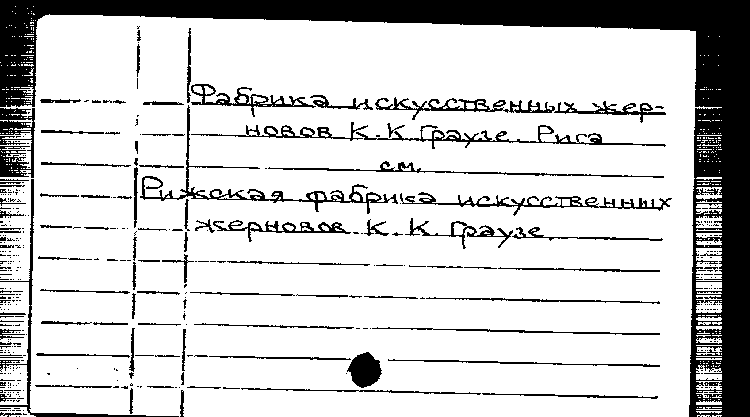 Фабрика искусственных жер-
новов К.К.Граузе. Рига
см.
Рижская фабрика искусственных
жерновов К.К.Граузе.